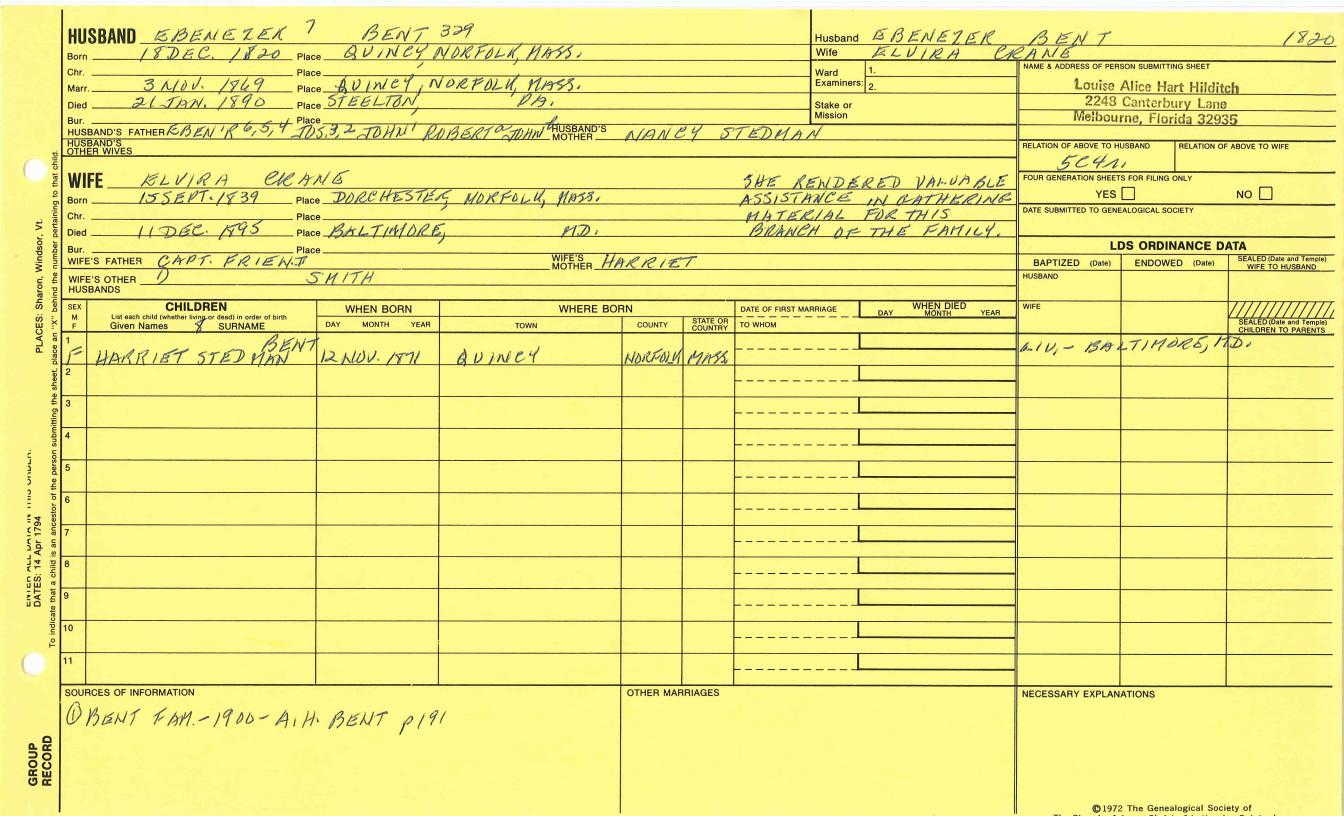 HUSBAND EBENEZER 7 BENT 329
Born 18 DEC. 1820 Place QUINCY, NORFOLK, MASS.
Chr. Place
Marr. 3 NOV. 1869 Place QUINCY, NORFOLK, MASS.
Died 21 JAN. 1890 Place STEELTON, PA.
Bur. Place
HUSBAND'S FATHER EBEN'R 6,5,4 JOS.3,2 JOHN1 ROBERTa JOHNb HUSBAND'S MOTHER NANCY STEDMAN
HUSBAND'S OTHER WIVES
Husband EBENEZER BENT 1820
Wife ELVIRA CRANE
Ward Examiners: 1.
2.
Stake or Mission
NAME & ADDRESS OF PERSON SUBMITTING SHEET
Louise Alice Hart Hilditch
2243 Canterbury Lane
Melbourne, Florida 32935
RELATION OF ABOVE TO HUSBAND RELATION OF ABOVE TO WIFE
5C4r.
FOUR GENERATION SHEETS FOR FILING ONLY
YES NO
DATE SUBMITTED TO GENEALOGICAL SOCIETY
WIFE ELVIRA CRANE
Born 15 SEPT. 1839 Place DORCHESTER, NORFOLK, MASS.
Chr. Place
Died 11 DEC. 1895 Place BALTIMORE, MD.
Bur. Place
SHE RENDERED VALUABLE
ASSISTANCE IN GATHERING
MATERIAL FOR THIS
BRANCH OF THE FAMILY.
WIFE'S FATHER CAPT. FRIEND WIFE'S MOTHER HARRIET
WIFE'S OTHER HUSBANDS 1) SMITH
LDS ORDINANCE DATA
BAPTIZED (Date) ENDOWED (Date) SEALED (Date and Temple) WIFE TO HUSBAND
HUSBAND
WIFE
SEALED (Date and Temple) CHILDREN TO PARENTS
SEX M F
CHILDREN
List each child (whether living or dead) in order of birth
Given Names 8 SURNAME
WHEN BORN
DAY MONTH YEAR
WHERE BORN
TOWN COUNTY STATE OR COUNTRY
DATE OF FIRST MARRIAGE
TO WHOM
WHEN DIED
DAY MONTH YEAR
1 BENT
F HARRIET STEDMAN 12 NOV. 1871 QUINCY NORFOLK MASS. LIV. - BALTIMORE, MD.
2
3
4
5
6
7
8
9
10
11
SOURCES OF INFORMATION
① BENT FAM. - 1900 - A.H. BENT p191
OTHER MARRIAGES
NECESSARY EXPLANATIONS
©1972 The Genealogical Society of
PLACES: Sharon, Windsor, Vt.
ENTER ALL DATA IN THIS ORDER:
DATES: 14 Apr 1794
To indicate that a child is an ancestor of the person submitting the sheet, place an "X" behind the number pertaining to that child.
GROUP RECORD